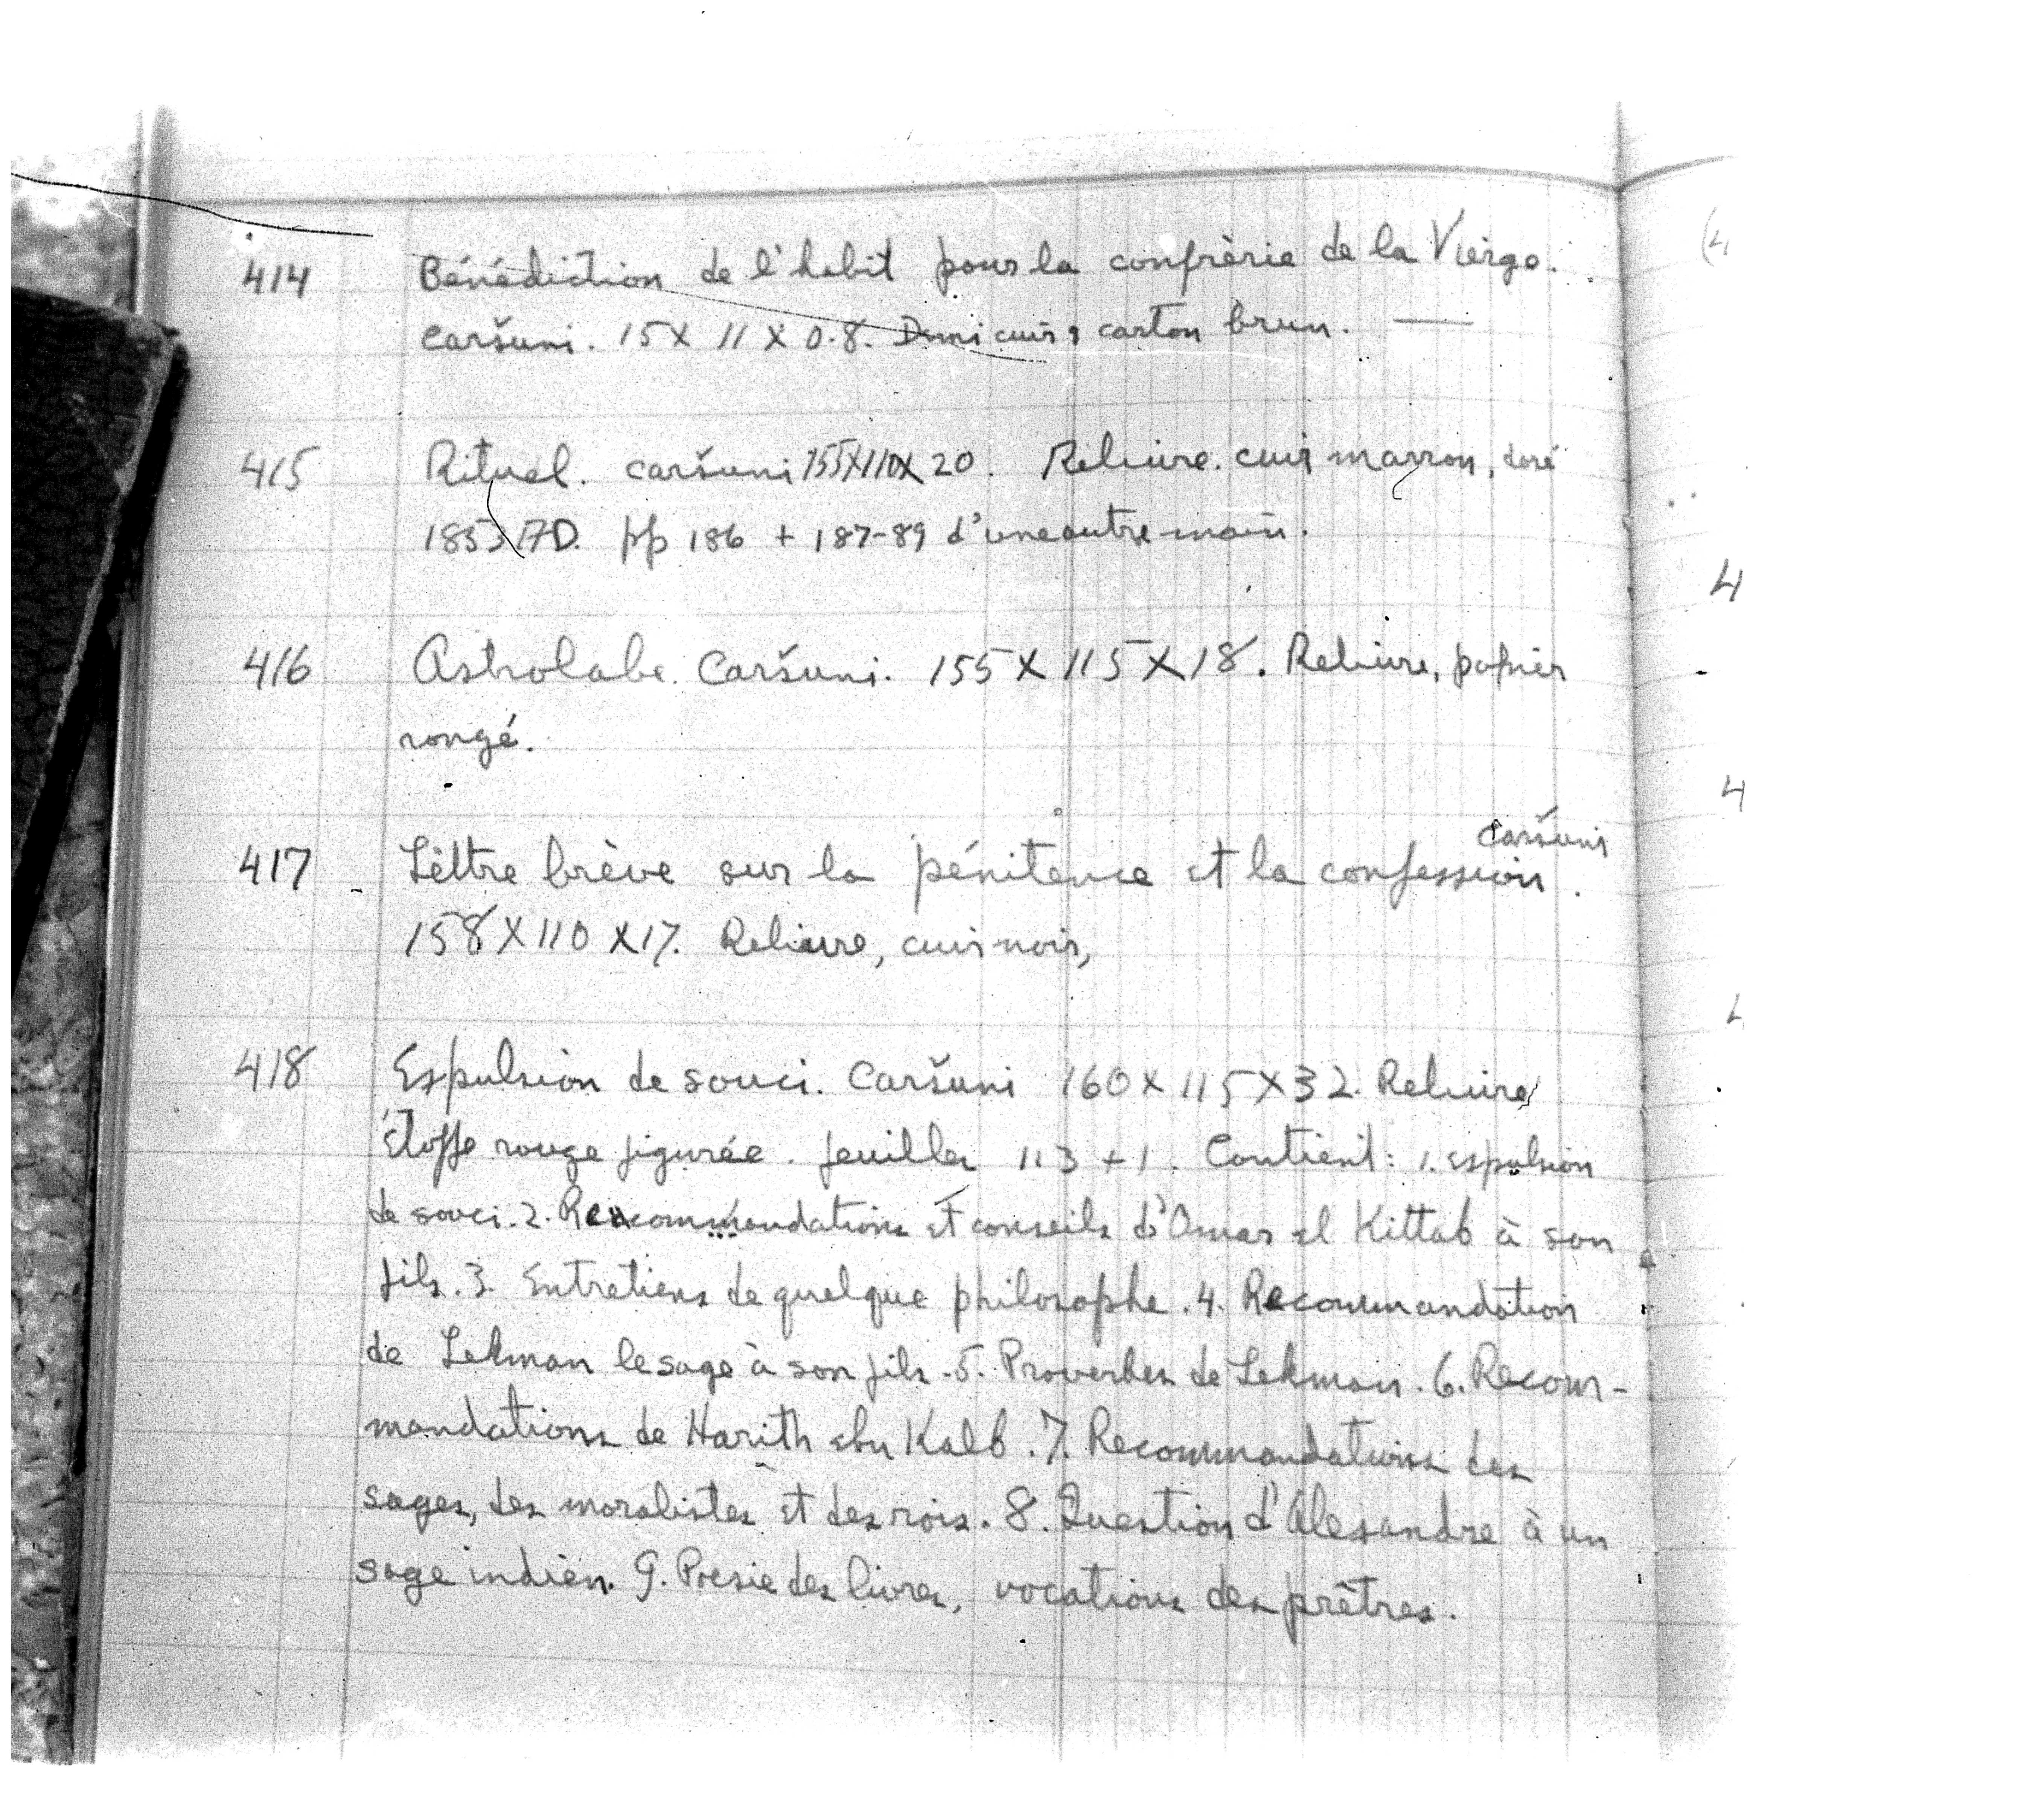 414 Bénédiction de l'habit pour la confrèrie de la Vierge.
Caršuni. 15 X 11 X 0.8. Demi cuir, carton brun. —
415 Rituel. Caršuni 155X110X20. Reliure. cuir marron, doré
1853 AD. pp 186 + 187-89 d'une autre main.
416 Astrolabe. Caršuni. 155 X 115 X 18. Reliure, papier
rongé.
Caršuni
417 Lèttre brève sur la pénitence et la confession.
158 X 110 X 17. Reliure, cuir noir,
418 Espulsion de souci. Caršuni 160 X 115 X 32. Reliure
étoffe rouge figurée. feuilles 113 + 1. Contient: 1. espulsion
de souci. 2. Recommendations et conseils d'Omar el Kittab à son
fils. 3. Entretiens de quelque philosophe. 4. Recommandation
de Lekman le sage à son fils. 5. Proverbes de Lekman. 6. Recom-
mandations de Harith ebn Kalb. 7. Recommandations des
sages, des moralistes et des rois. 8. Question d'Alesandre à un
sage indien. 9. Poesie des livres, vocations des prêtres.